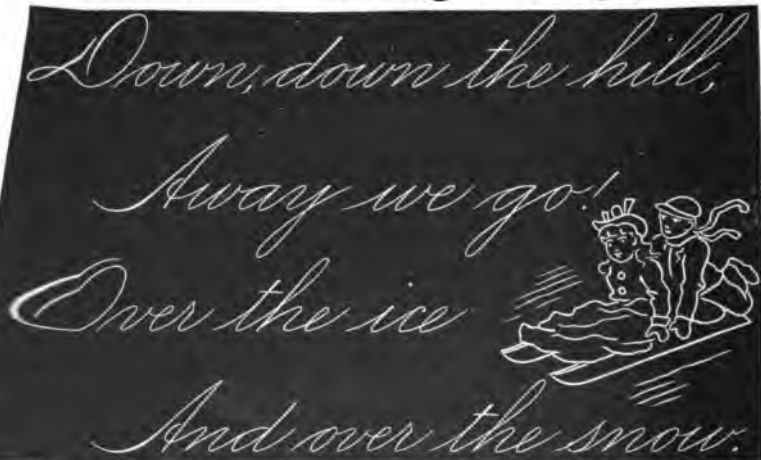 Down, down the hill,
Away we go!
Over the ice
And over the snow.